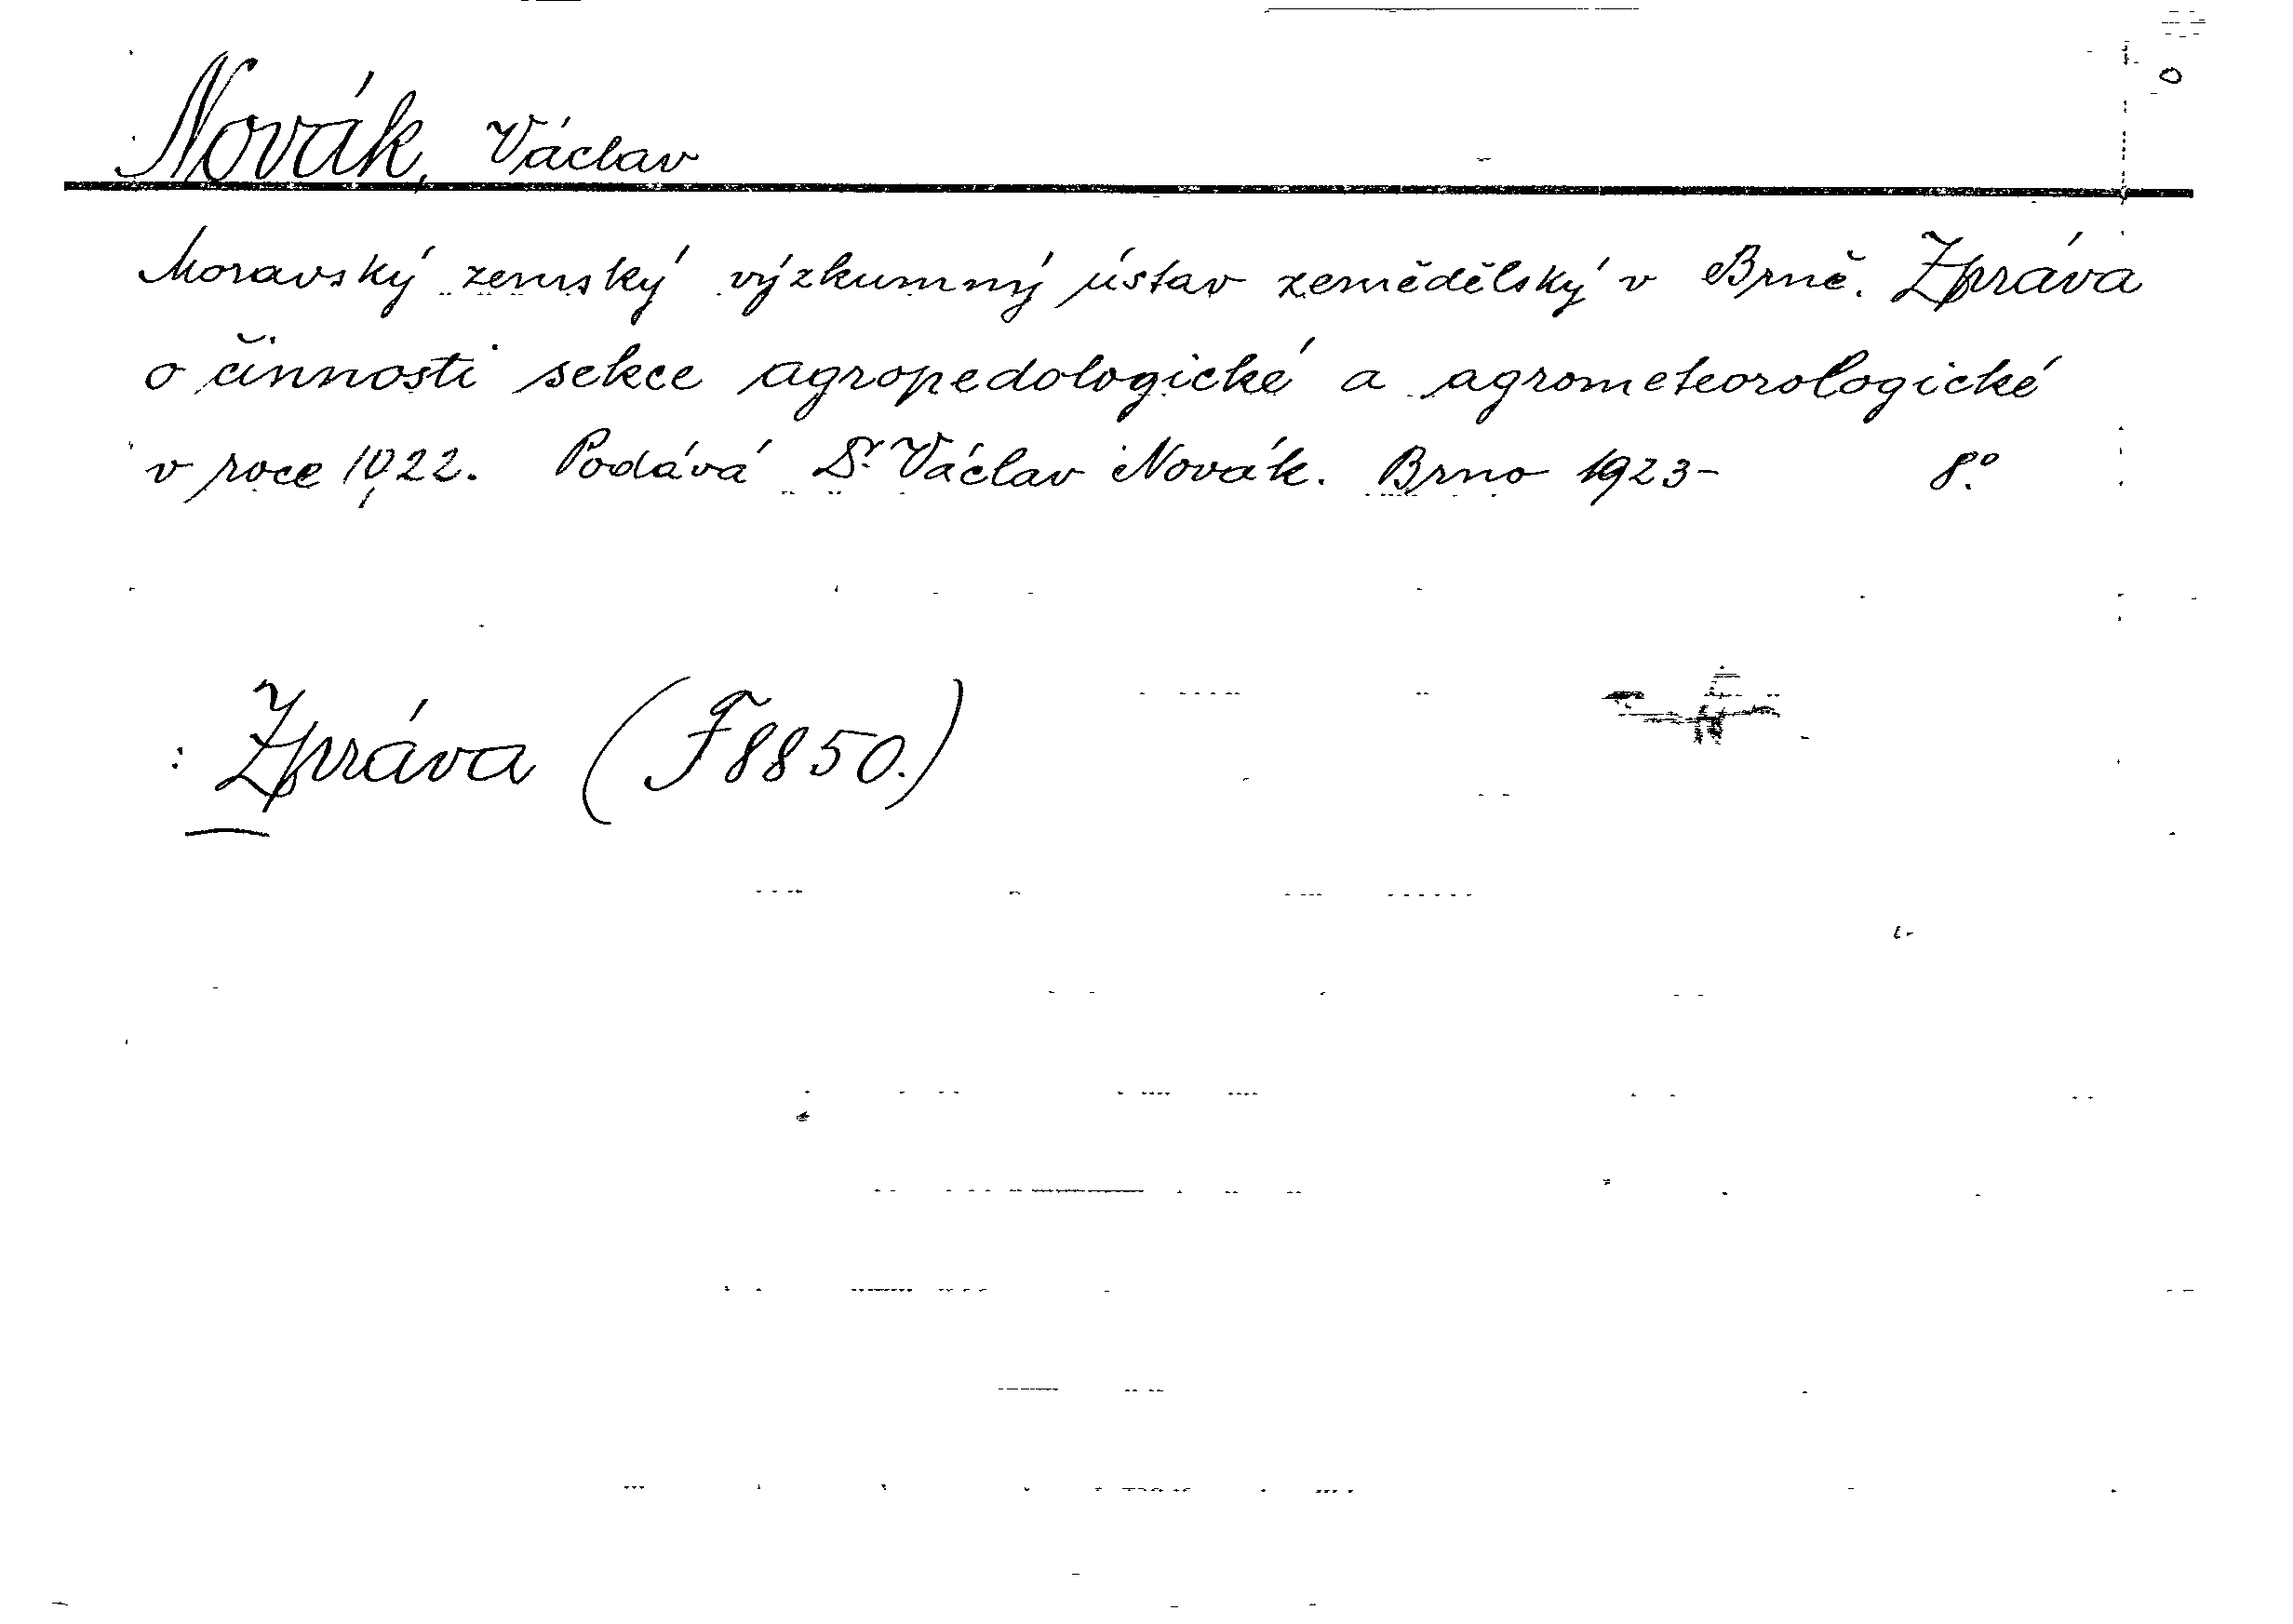 Novák, Václav
Moravský zemský výzkumný ústav zemědělský v Brně. Zpráva
o činnosti sekce agropedologické a agrometeorologické
v roce 1922. Podává Dr. Václav Novák. Brno 1923- 8°.
: Zpráva (F8850.)